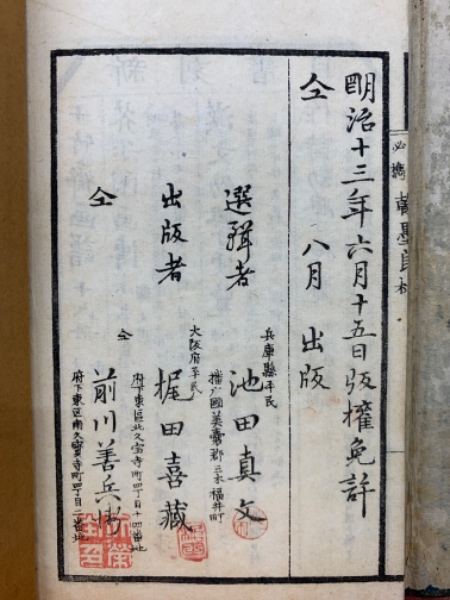 必携
明治十三年六月十五日版權免許
仝 八月 出版
選輯者
兵庫縣平民
播广國美嚢郡三木福井町
池田真文
出版者
大阪府平民
府下東區北久宝寺町四丁目十四番地
梶田喜藏
仝
仝
府下東区南久寶寺町四丁目二番地
前川善兵衛